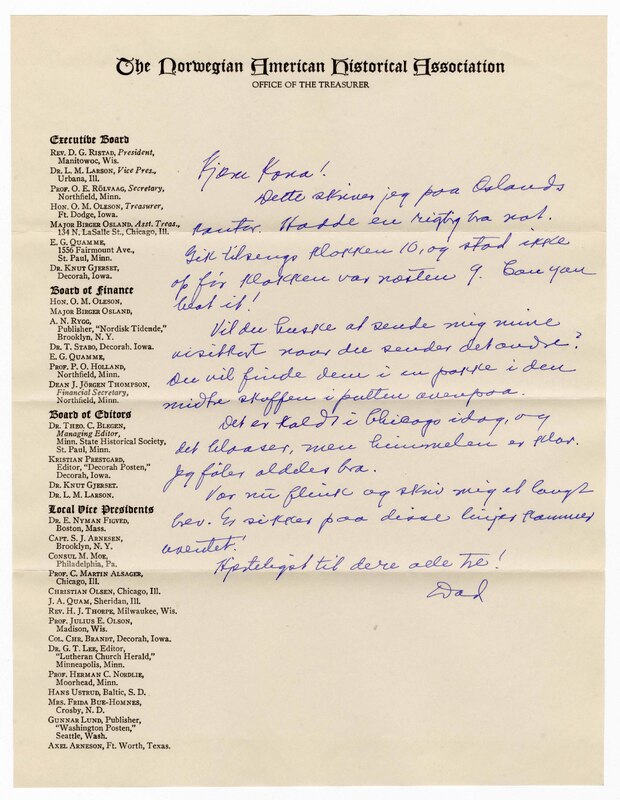 The Norwegian American Historical Association
OFFICE OF THE TREASURER
Executive Board
REV. D. G. RISTAD, President,
Manitowoc, Wis.
DR. L. M. LARSON, Vice Pres.,
Urbana, Ill.
PROF. O. E. RÖLVAAG, Secretary,
Northfield, Minn.
HON. O. M. OLESON, Treasurer,
Ft. Dodge, Iowa.
MAJOR BIRGER OSLAND, Asst. Treas.,
134 N. LaSalle St., Chicago, Ill.
E. G. QUAMME,
1556 Fairmount Ave.,
St. Paul, Minn.
DR. KNUT GJERSET,
Decorah, Iowa.
Board of Finance
HON. O. M. OLESON,
MAJOR BIRGER OSLAND,
A. N. RYGG,
Publisher, "Nordisk Tidende,"
Brooklyn, N. Y.
DR. T. STABO, Decorah, Iowa.
E. G. QUAMME,
PROF. P. O. HOLLAND,
Northfield, Minn.
DEAN J. JÖRGEN THOMPSON,
Financial Secretary,
Northfield, Minn.
Board of Editors
DR. THEO. C. BLEGEN,
Managing Editor,
Minn. State Historical Society,
St. Paul, Minn.
KRISTIAN PRESTGARD,
Editor, "Decorah Posten,"
Decorah, Iowa.
DR. KNUT GJERSET.
DR. L. M. LARSON.
Local Vice Presidents
DR. E. NYMAN FIGVED,
Boston, Mass.
CAPT. S. J. ARNESEN,
Brooklyn, N. Y.
CONSUL M. MOE,
Philadelphia, Pa.
PROF. C. MARTIN ALSAGER,
Chicago, Ill.
CHRISTIAN OLSEN, Chicago, Ill.
J. A. QUAM, Sheridan, Ill.
REV. H. J. THORPE, Milwaukee, Wis.
PROF. JULIUS E. OLSON,
Madison, Wis.
COL. CHR. BRANDT, Decorah, Iowa.
DR. G. T. LEE, Editor,
"Lutheran Church Herald,"
Minneapolis, Minn.
PROF. HERMAN C. NORDLIE,
Moorhead, Minn.
HANS USTRUD, Baltic, S. D.
MRS. FRIDA BUE-HOMNES,
Crosby, N. D.
GUNNAR LUND, Publisher,
"Washington Posten,"
Seattle, Wash.
AXEL ARNESON, Ft. Worth, Texas.
Kjære Kona!
Dette skriver jeg paa Oslands
kontor. Hadde en rigtig bra nat.
Gik tilsengs klokken 10, og stod ikke
op før klokken var næsten 9. Can you
beat it!
Vil du huske at sende mig mine
visitkort naar du sender det andre?
Du vil finde dem i en pakke i den
midtre skuffen i pulten ovenpaa.
Det er koldt i Chicago idag, og
det blaaser, men himmelen er klar.
Jeg føler aldeles bra.
Vær nu flink og skriv mig et langt
brev. Er sikker paa disse linjer kommer
uventet!
Hjerteligst til dere alle tre!
Dad